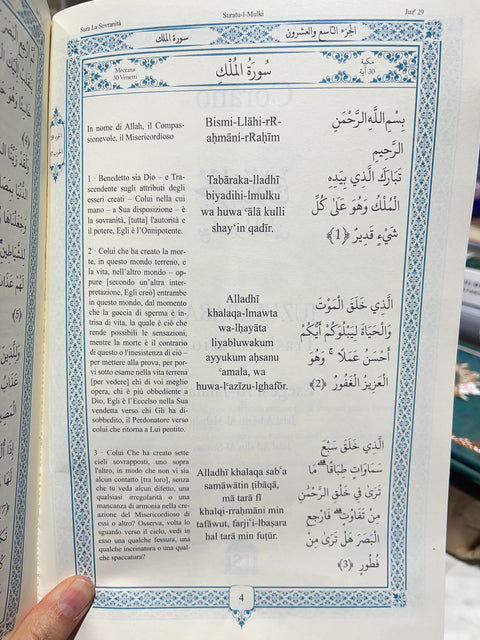 Sura La Sovranità
Suratu-l-Mulki
Juz' 29
سورة الملك
الجزء التاسع والعشرون
Meccana
30 Versetti
سُورَةُ الْمُلْكِ
مكية
30 آية
In nome di Allah, il Compas-
sionevole, il Misericordioso
Bismi-Llāhi-rR-
aḥmāni-rRaḥīm
بِسْمِ اللَّهِ الرَّحْمَنِ
الرَّحِيمِ
1 · Benedetto sia Dio – e Tra-
scendente sugli attributi degli
esseri creati – Colui nella cui
mano – a Sua disposizione – è
la sovranità, [tutta] l'autorità e
il potere, Egli è l'Onnipotente.
Tabāraka-lladhī
biyadihi-lmulku
wa huwa ʿālā kulli
shay'in qadīr.
تَبَارَكَ الَّذِي بِيَدِهِ
الْمُلْكُ وَهُوَ عَلَىٰ كُلِّ
شَيْءٍ قَدِيرٌ ﴿1﴾
2 · Colui che ha creato la mor-
te, in questo mondo terreno, e
la vita, nell'altro mondo – op-
pure [secondo un'altra inter-
pretazione, Egli creò] entrambe
in questo mondo, dal momento
che la goccia di sperma è in-
trisa di vita, la quale è ciò che
rende possibili le sensazioni,
mentre la morte è il contrario
di questo o l'inesistenza di ciò –
per mettere alla prova, per por-
vi sotto esame nella vita terrena
[per vedere] chi di voi meglio
operi, chi è più obbediente a
Dio, Egli è l'Eccelso nella Sua
vendetta verso chi Gli ha di-
sobbedito, il Perdonatore verso
colui che ritorna a Lui pentito.
Alladhī
khalaqa-lmawta
wa-lḥayāta
liyabluwakum
ayyukum aḥsanu
ʿamala, wa
huwa-lʿazīzu-lghafōr.
الَّذِي خَلَقَ الْمَوْتَ
وَالْحَيَاةَ لِيَبْلُوَكُمْ أَيُّكُمْ
أَحْسَنُ عَمَلًا ۚ وَهُوَ
الْعَزِيزُ الْغَفُورُ ﴿2﴾
3 · Colui Che ha creato sette
cieli sovrapposti, uno sopra
l'altro, in modo che non vi sia
alcun contatto [tra loro], senza
che tu veda alcun difetto, una
qualsiasi irregolarità o una
mancanza di armonia nella cre-
azione del Misericordioso di
essi o altro? Osserva, volta lo
sguardo verso il cielo, vedi in
esso una qualche fessura, una
qualche incrinatura o una qual-
che spaccatura?
Alladhī khalaqa sabʿa
samāwātin ṭibāqā,
mā tarā fī
khalqi-rraḥmāni min
tafāwut, farjiʿi-lbaṣara
hal tarā min fuṭūr.
الَّذِي خَلَقَ سَبْعَ
سَمَاوَاتٍ طِبَاقًا ۖ مَّا
تَرَىٰ فِي خَلْقِ الرَّحْمَٰنِ
مِن تَفَاوُتٍ ۖ فَارْجِعِ
الْبَصَرَ هَلْ تَرَىٰ مِن
فُطُورٍ ﴿3﴾
4